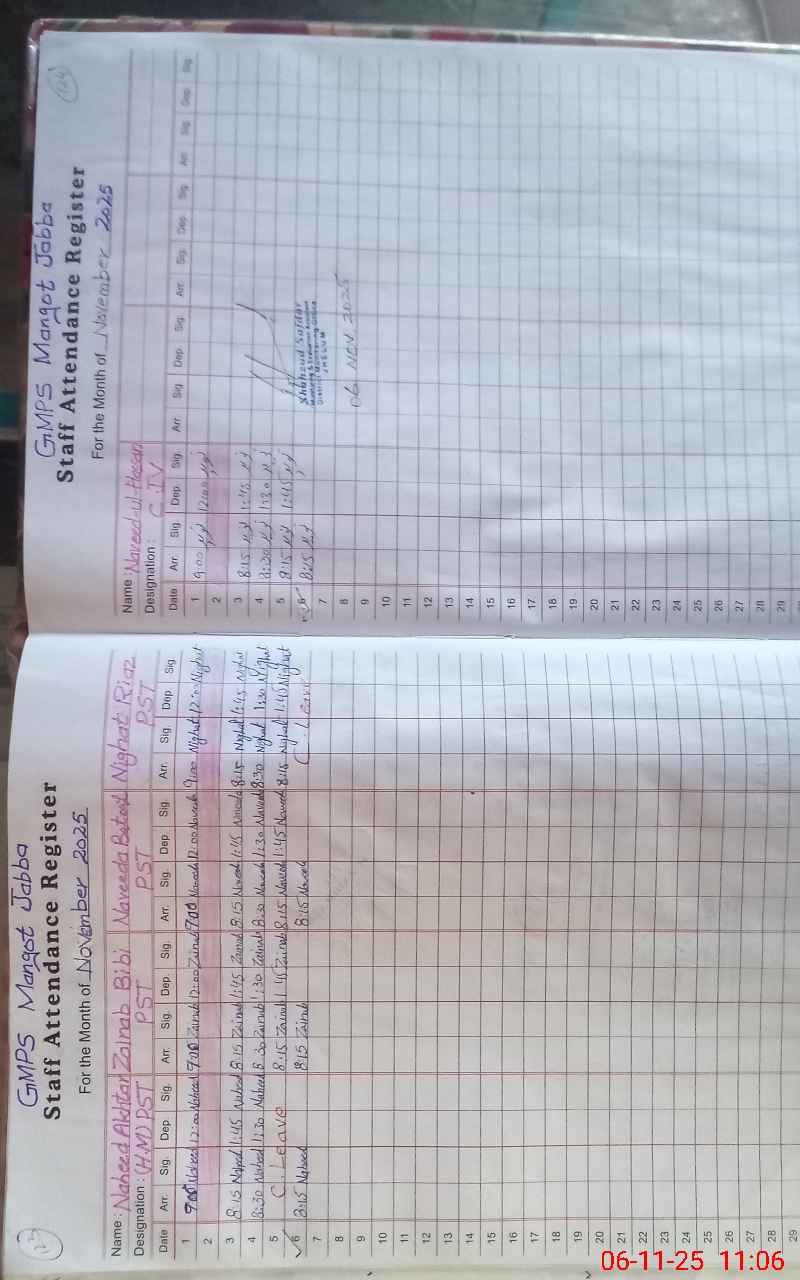 GMPS Mangot Jabba
Staff Attendance Register
For the Month of November 2025
Name : Naheed Akhtar Zainab Bibi Naveeda Batool Nighat Riaz
Designation : (H.M) PST PST PST PST
Date Arr. Sig. Dep. Sig. Arr. Sig. Dep. Sig. Arr. Sig. Dep. Sig. Arr. Sig. Dep. Sig
1 9:00 Naheed 12:00 Naheed 9:00 Zainab 12:00 Zainab 9:00 Naveeda 12:00 Naveeda 9:00 Nighat 12:00 Nighat
2
3 8:15 Naheed 1:45 Naheed 8:15 Zainab 1:45 Zainab 8:15 Naveeda 1:45 Naveeda 8:15 Nighat 1:45 Nighat
4 8:30 Naheed 1:30 Naheed 8:30 Zainab 1:30 Zainab 8:30 Naveeda 1:30 Naveeda 8:30 Nighat 1:30 Nighat
5 C. Leave 8:15 Zainab 1:45 Zainab 8:15 Naveeda 1:45 Naveeda 8:15 Nighat 1:45 Nighat
6 8:15 Naheed 8:15 Zainab 8:15 Naveeda C. Leave
7
8
9
10
11
12
13
14
15
16
17
18
19
20
21
22
23
24
25
26
27
28
29
GMPS Mangot Jabba
Staff Attendance Register
For the Month of November 2025
Name : Naveed-ul-Hasan
Designation : C.IV
Date Arr. Sig. Dep. Sig. Arr. Sig. Dep. Sig. Arr. Sig. Dep. Sig. Arr. Sig. Dep. Sig.
1 9:00 12:00
2
3 8:15 1:45
4 8:30 1:30
5 8:15 1:45
6 8:15
7
8
9
10
11
12
13
14
15
16
17
18
19
20
21
22
23
24
25
26
27
28
29
Shaheud Safdar
Monitoring & Evaluation Assistant
District Monitoring Office
JHELUM
06 NOV 2025
06-11-25 11:06